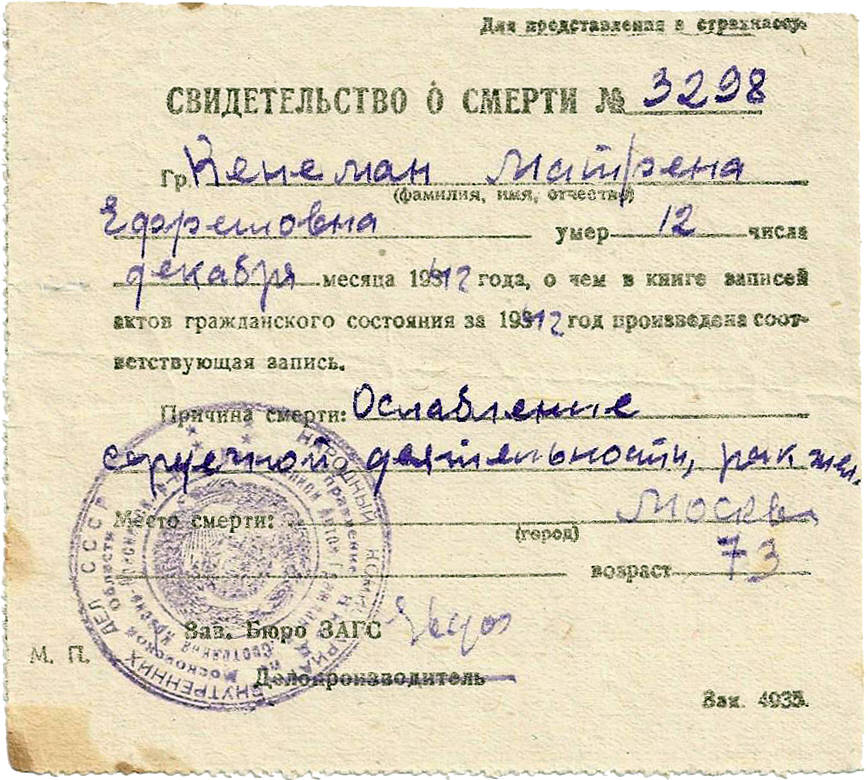 Для представления в страхкассу.
СВИДЕТЕЛЬСТВО О СМЕРТИ № 3298
Гр. Кенеман Матрена
(фамилия, имя, отчество)
Ефремовна умер 12 числа
декабря месяца 1942 года, о чем в книге записей
актов гражданского состояния за 1942 год произведена соот-
ветствующая запись.
Причина смерти: Ослабление
сердечной деятельности, рак жел.
Место смерти: Москва
(город)
возраст 73
Зав. Бюро ЗАГС
М. П.
Делопроизводитель
Зак. 4935.
НАРОДНЫЙ КОМИССАРИАТ ВНУТРЕННИХ ДЕЛ СССР